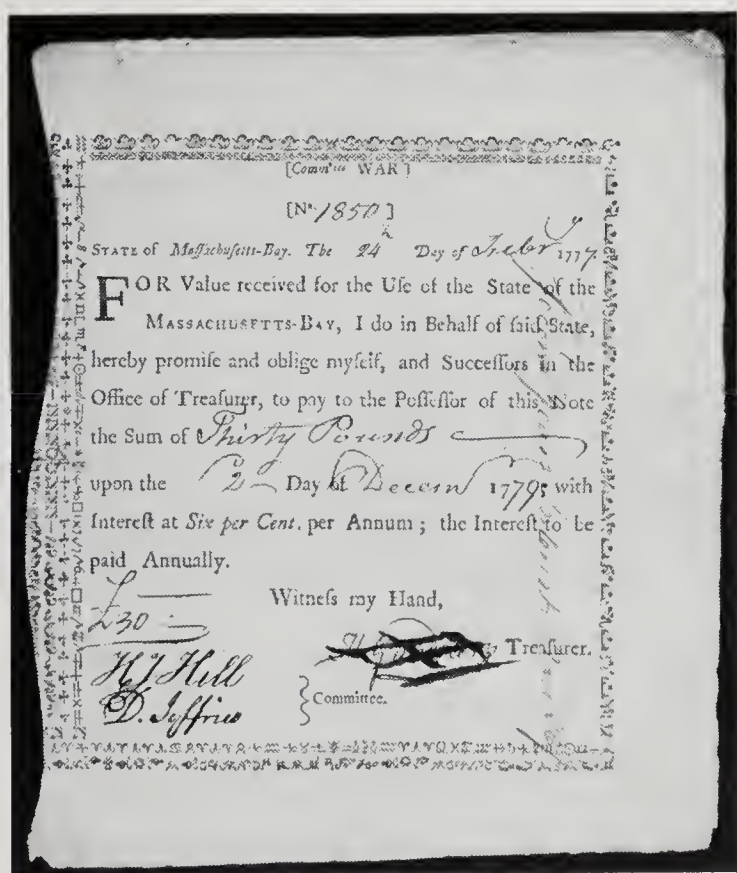 [Comm^tee WAR]
[N^o. 1850]
STATE of Maſſachuſetts-Bay. The 24 Day of Febr^y 1777.
FOR Value received for the Uſe of the State of the
MASSACHUSETTS-BAY, I do in Behalf of ſaid State,
hereby promiſe and oblige myſelf, and Succeſſors in the
Office of Treaſurer, to pay to the Poſſeſſor of this Note
the Sum of Thirty Pounds
upon the 2 Day of Decem^r 1779, with
Intereſt at Six per Cent. per Annum; the Intereſt to be
paid Annually.
Witneſs my Hand,
£30
Treaſurer.
H J Hill
D. Jeffries
Committee.